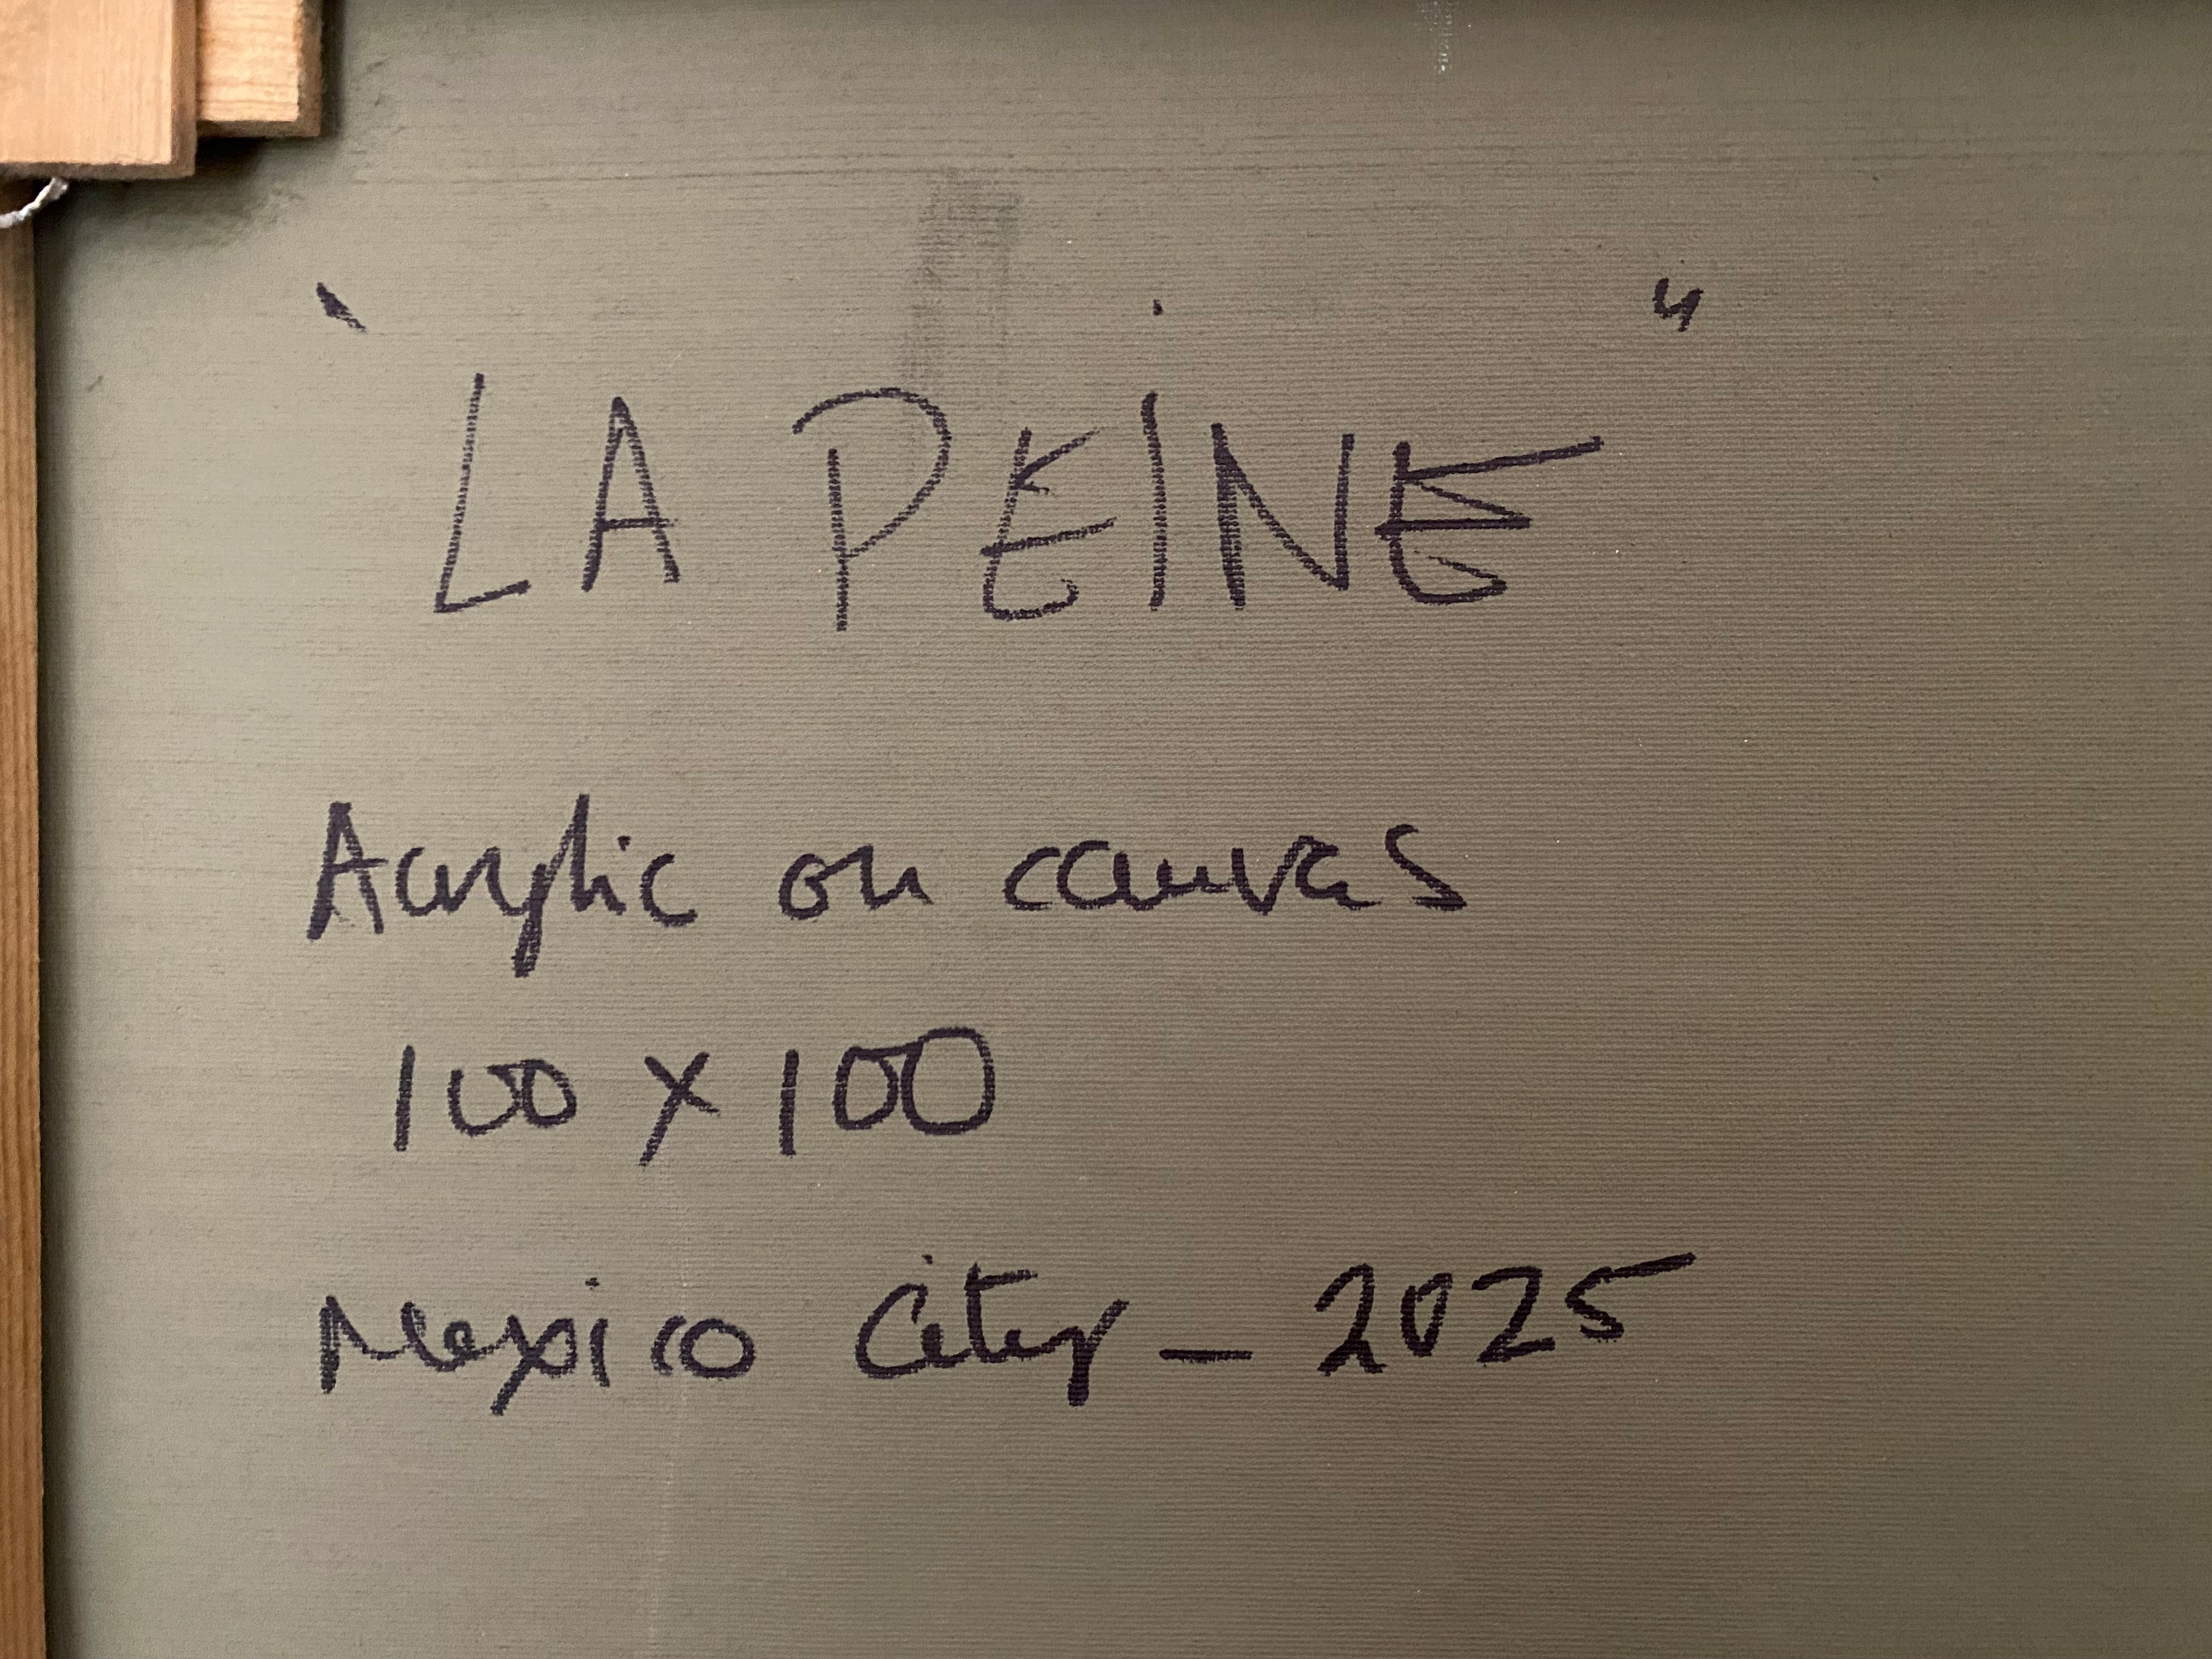 "LA PEINE"
Acrylic on canvas
100 x 100
Mexico City _ 2025